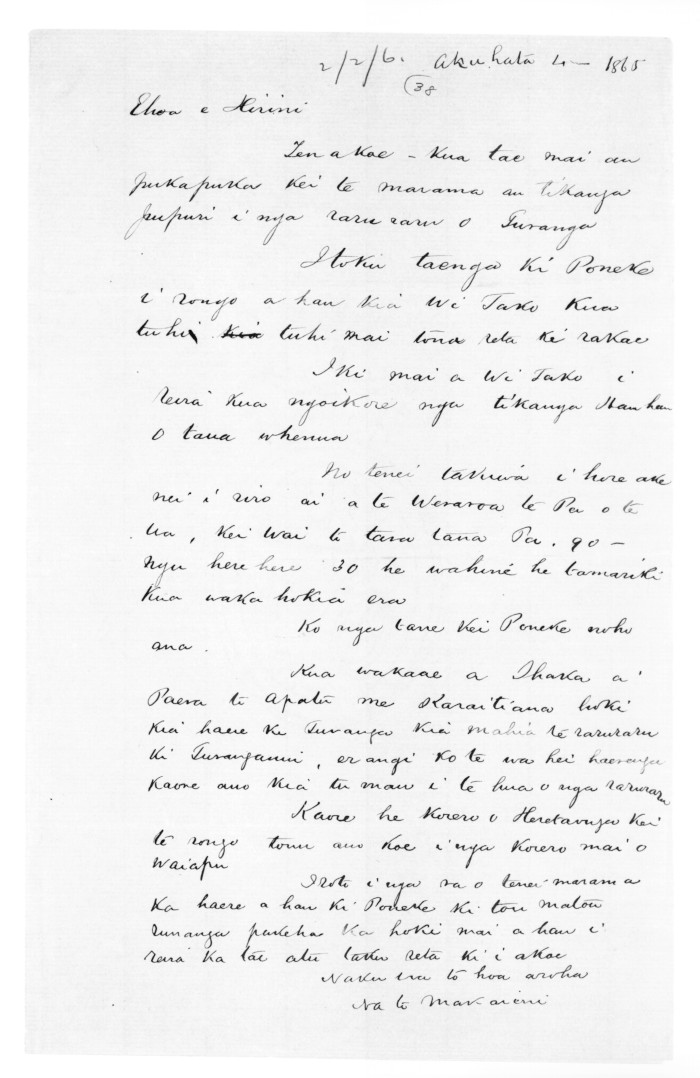 2/2/6. Akuhata 4 - 1865
(38
Ehoa e Hirini
Tenakoe - Kua tae mai au
pukapuka kei te marama au tikanga
pupuri i nga raru raru o Turanga
Itoku taenga ki Poneke
i rongo a hau kia Wi Tako kua
tuhi kia tuhi mai tona reta ki rakoe
I ki mai a Wi Tako i
reira kua ngoikore nga tikanga Hau hau
o taua whenua
No tenei takiwa i hore ake
nei i riro ai a te Weraroa te Pa o te
Ua, kei Wai te tara tana Pa. 90 -
nga here here 30 he wahine he tamariki
kua waka hokia era
Ko nga tane kei Poneke noho
ana.
Kua wakaae a Ihaka a
Paera te Apatu me Karaitiana hoki
kia haere ki Turanga kia mahia te raruraru
ki Turanganui, erangi ko te wa hei haerenga
kaore ano kia tu mau i te hua o nga raruraru
Kaore he korero o Heretaunga kei
te rongo tonu ano koe i nga korero mai o
Waiapu
Iroto i nga ra o tenei marama
ka haere a hau ki Poneke ki tou matou
runanga pakeha ka hoki mai a hau i
reira ka tae atu taku reta ki i akoe
Naku na to hoa aroha
Na te Makarini